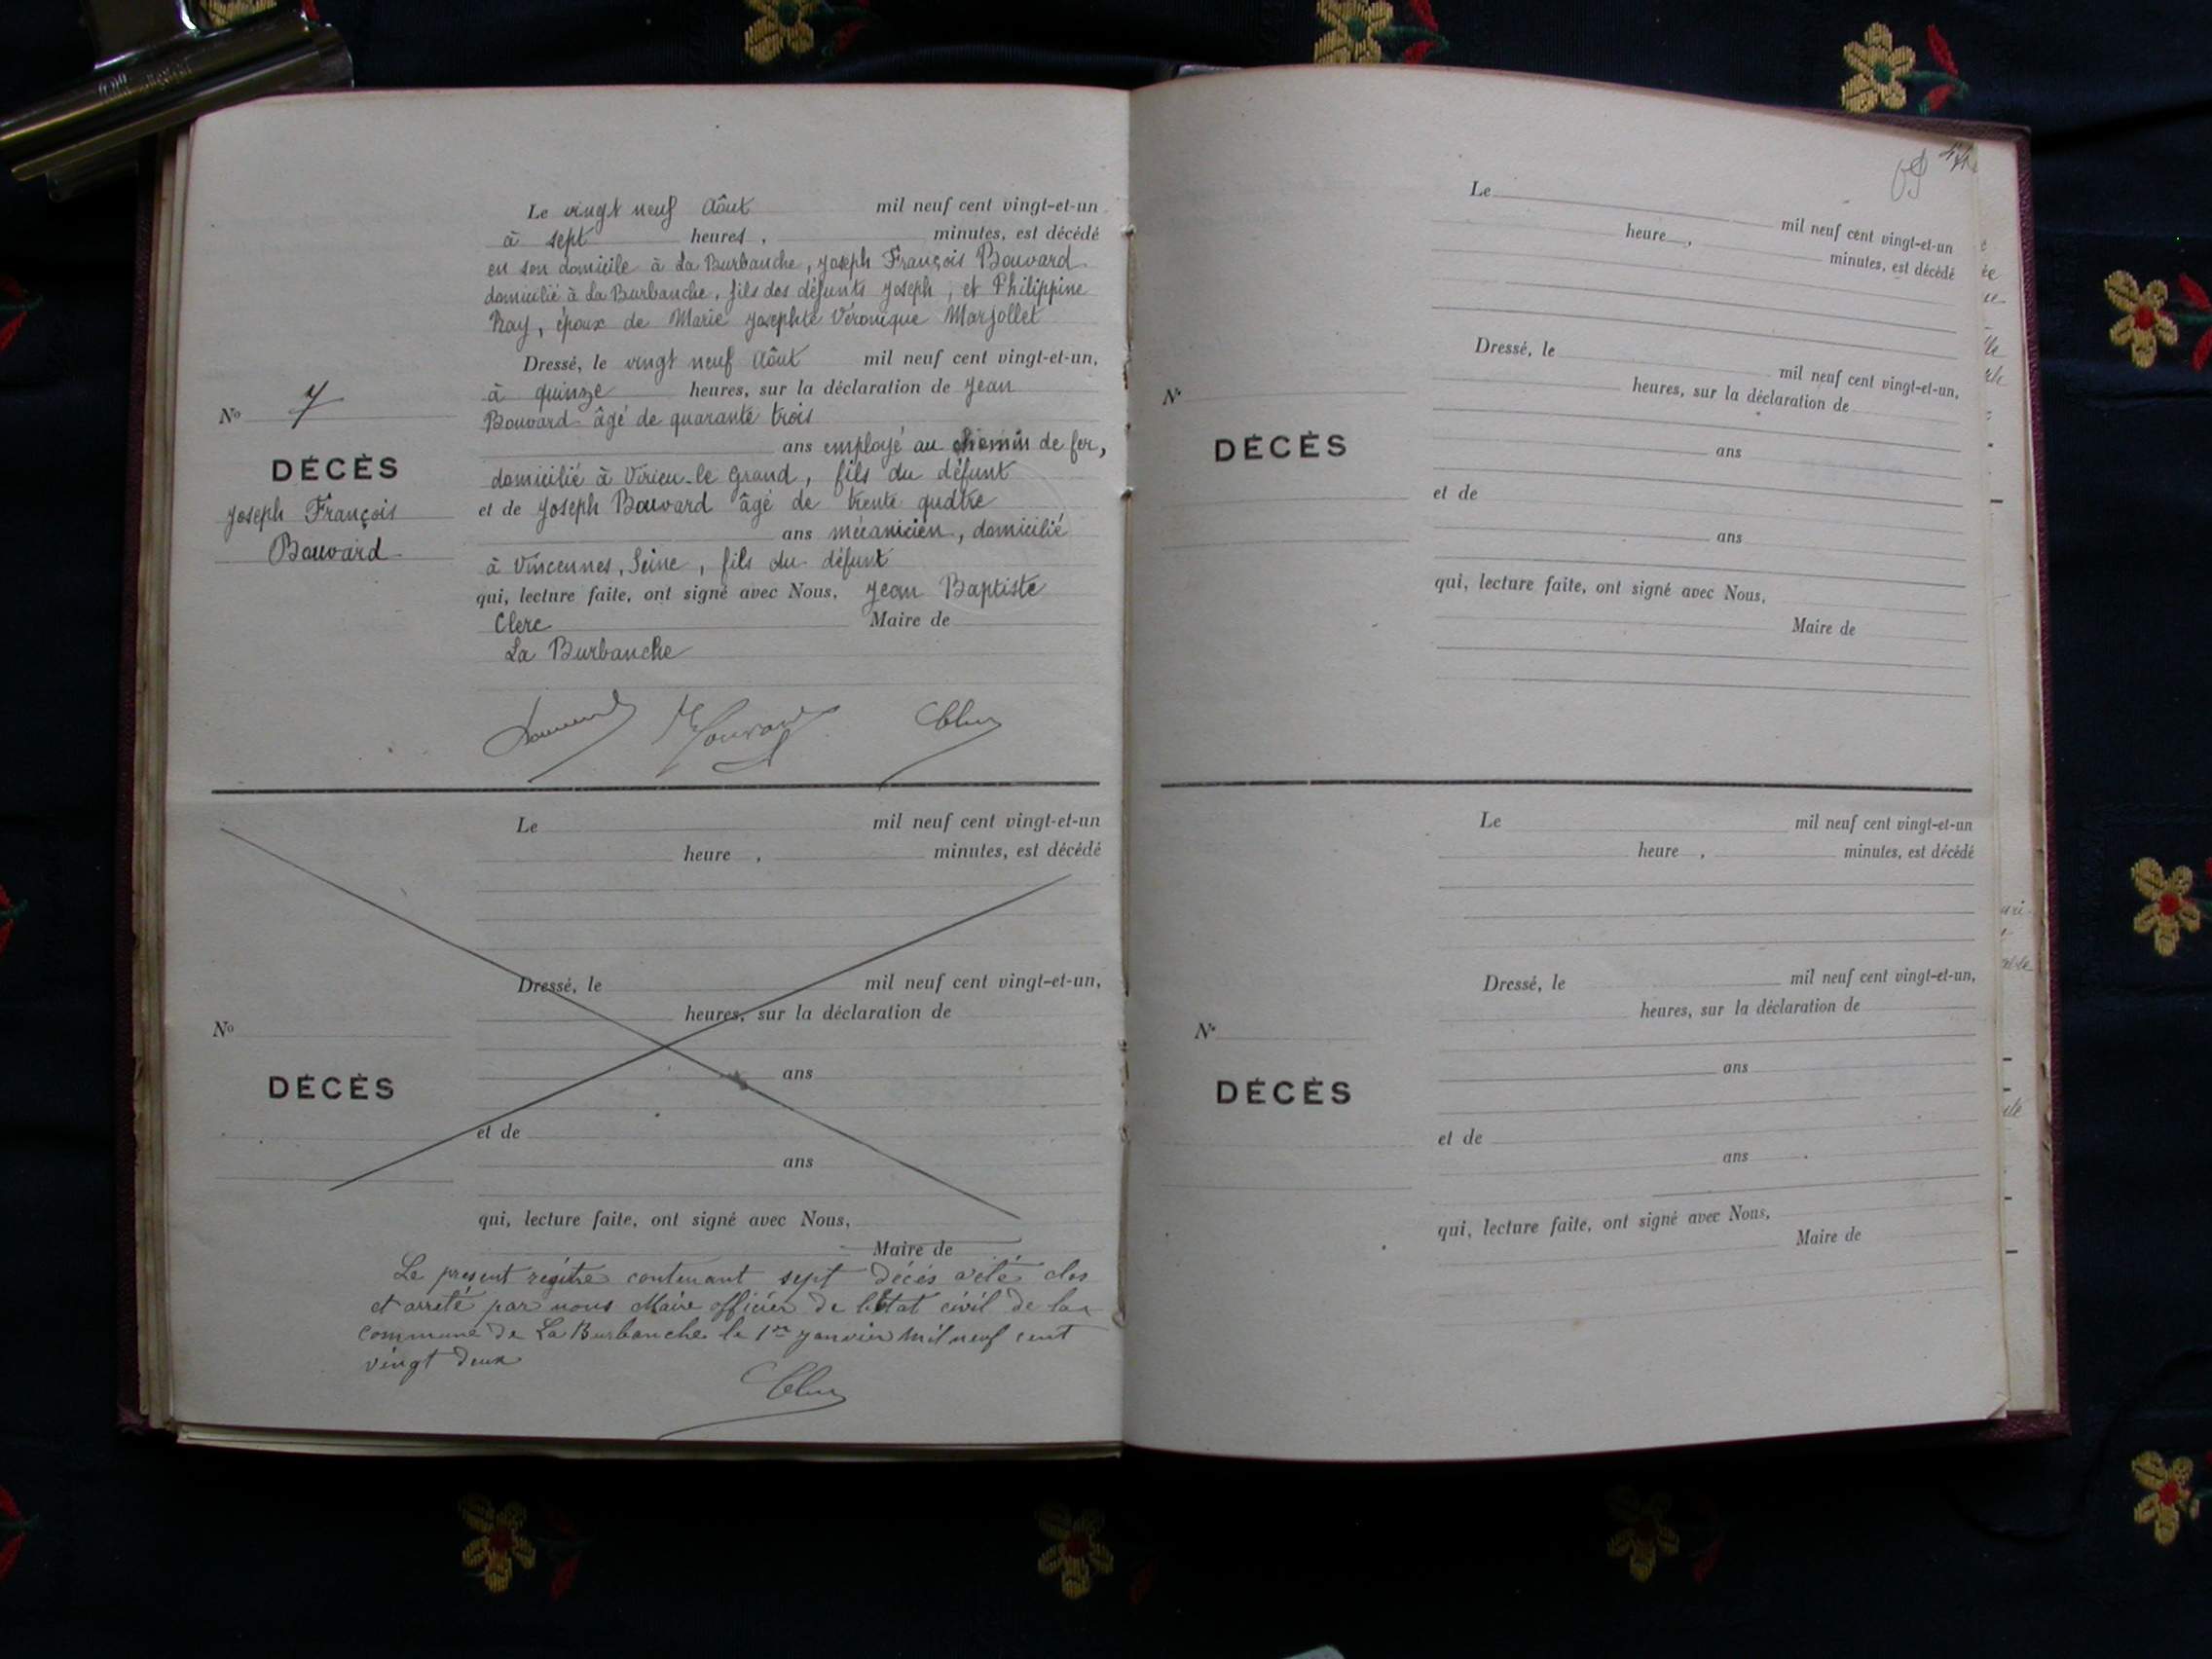 Le vingt neuf Août mil neuf cent vingt-et-un
à sept heures, minutes, est décédé
en son domicile à La Burbanche, Joseph François Bouvard
domicilié à La Burbanche, fils des défunts Joseph, et Philippine
Ray, époux de Marie Josephte Véronique Marjollet
Dressé, le vingt neuf Août mil neuf cent vingt-et-un,
à quinze heures, sur la déclaration de Jean
Bouvard âgé de quarante trois
ans employé au chemin de fer,
domicilié à Virieu-le Grand, fils du défunt
et de Joseph Bouvard âgé de trente quatre
ans mécanicien, domicilié
à Vincennes, Seine, fils du défunt
qui, lecture faite, ont signé avec Nous, Jean Baptiste
Clerc Maire de
La Burbanche
No 7
DÉCÈS
Joseph François
Bouvard
Le mil neuf cent vingt-et-un
heure , minutes, est décédé
Dressé, le mil neuf cent vingt-et-un,
heures, sur la déclaration de
ans
et de
ans
qui, lecture faite, ont signé avec Nous,
Maire de
No
DÉCÈS
Le présent régitre contenant sept décès a été clos
et arrêté par nous Maire officier de l'état civil de la
commune de La Burbanche le 1er janvier mil neuf cent
vingt deux
44
Le mil neuf cent vingt-et-un
heure , minutes, est décédé
Dressé, le mil neuf cent vingt-et-un,
heures, sur la déclaration de
ans
et de
ans
qui, lecture faite, ont signé avec Nous,
Maire de
N°
DÉCÈS
Le mil neuf cent vingt-et-un
heure , minutes, est décédé
Dressé, le mil neuf cent vingt-et-un,
heures, sur la déclaration de
ans
et de
ans
qui, lecture faite, ont signé avec Nous,
Maire de
N°
DÉCÈS